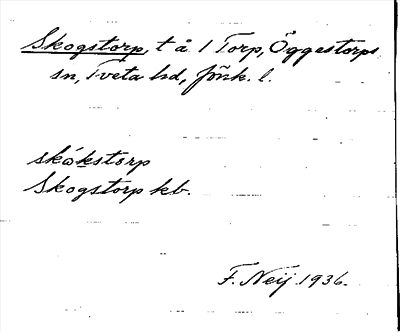 Skogstorp, t å. 1 Torp, Öggestorps
sn, Tveta hd, Jönk. l.
skókstorp
Skogstorp kb.
F. Neij 1936.